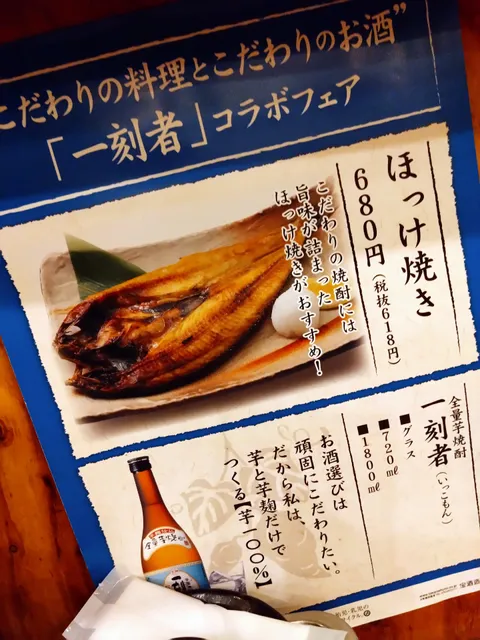 こだわりの料理とこだわりのお酒”
「一刻者」コラボフェア
ほっけ焼き
680円(税抜618円)
こだわりの焼酎には
旨味が詰まった
ほっけ焼きがおすすめ!
全量芋焼酎
一刻者(いっこもん)
■グラス
■720㎖
■1800㎖
お酒選びは
頑固にこだわりたい。
だから私は、
芋と芋麹だけで
つくる【芋一〇〇%】
宝酒造